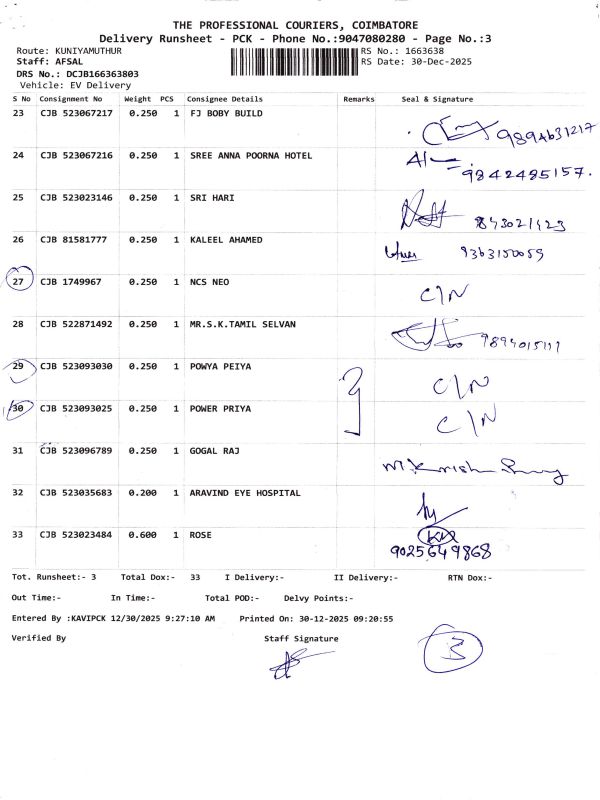 THE PROFESSIONAL COURIERS, COIMBATORE
Delivery Runsheet - PCK - Phone No.:9047080280 - Page No.:3
Route: KUNIYAMUTHUR RS No.: 1663638
Staff: AFSAL RS Date: 30-Dec-2025
DRS No.: DCJB166363803
Vehicle: EV Delivery
S No Consignment No Weight PCS Consignee Details Remarks Seal & Signature
23 CJB 523067217 0.250 1 FJ BOBY BUILD 9894631217
24 CJB 523067216 0.250 1 SREE ANNA POORNA HOTEL 9842485157.
25 CJB 523023146 0.250 1 SRI HARI
26 CJB 81581777 0.250 1 KALEEL AHAMED 9363150059
27 CJB 1749967 0.250 1 NCS NEO C/N
28 CJB 522871492 0.250 1 MR.S.K.TAMIL SELVAN
29 CJB 523093030 0.250 1 POWYA PEIYA C/N
30 CJB 523093025 0.250 1 POWER PRIYA C/N
31 CJB 523096789 0.250 1 GOGAL RAJ
32 CJB 523035683 0.200 1 ARAVIND EYE HOSPITAL
33 CJB 523023484 0.600 1 ROSE
9025649868
Tot. Runsheet:- 3 Total Dox:- 33 I Delivery:- II Delivery:- RTN Dox:-
Out Time:- In Time:- Total POD:- Delvy Points:-
Entered By :KAVIPCK 12/30/2025 9:27:10 AM Printed On: 30-12-2025 09:20:55
Verified By Staff Signature
3